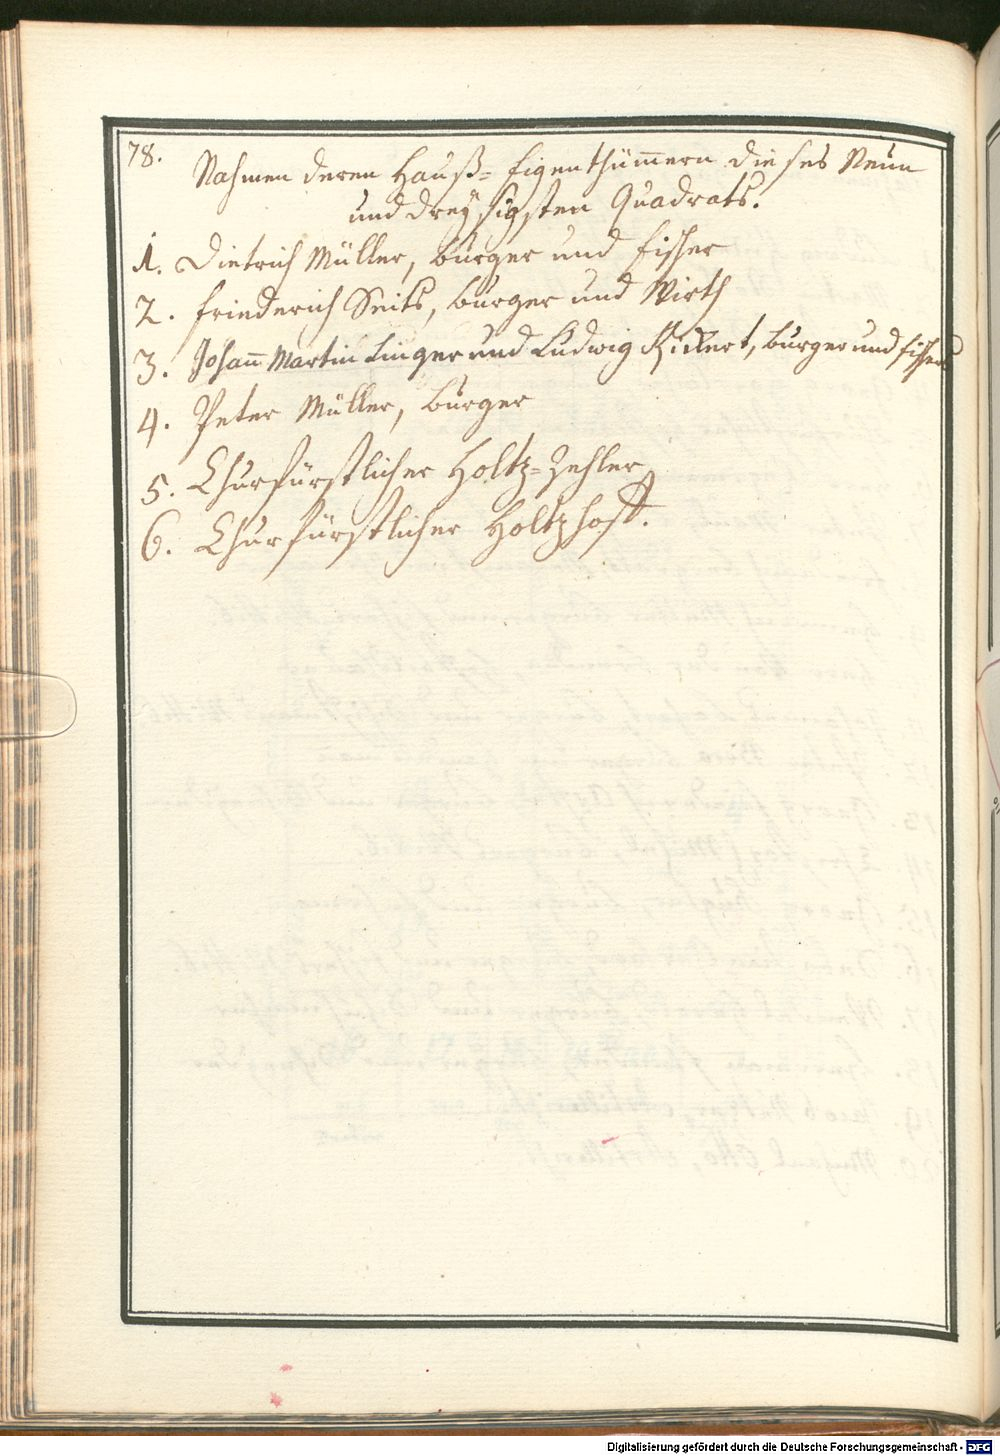 78.
Nahmen deren Hauß= Eigenthüm̄ern dieses Neun
und dreysigsten Quadrats.
1. Dietrich Müller, burger und fischer
2. Friederich Seits, burger und Wirth
3. Johan̄ Martin Linger und Ludwig Rickert, burger und fischers
4. Peter Müller, burger
5. Churfürstlicher Holtz=Zehler
6. Churfürstlicher Holtzhoff.
Digitalisierung gefördert durch die Deutsche Forschungsgemeinschaft - DFG